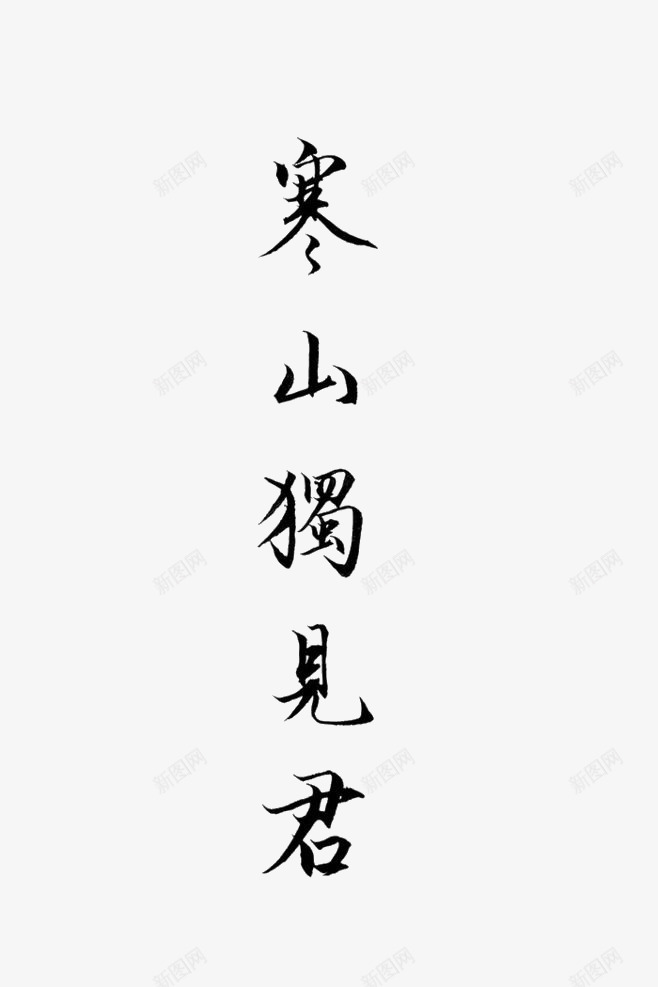 寒山獨見君
新图网 新图网 新图网
新图网 新图网 新图网
新图网 新图网 新图网
新图网 新图网 新图网
新图网 新图网 新图网